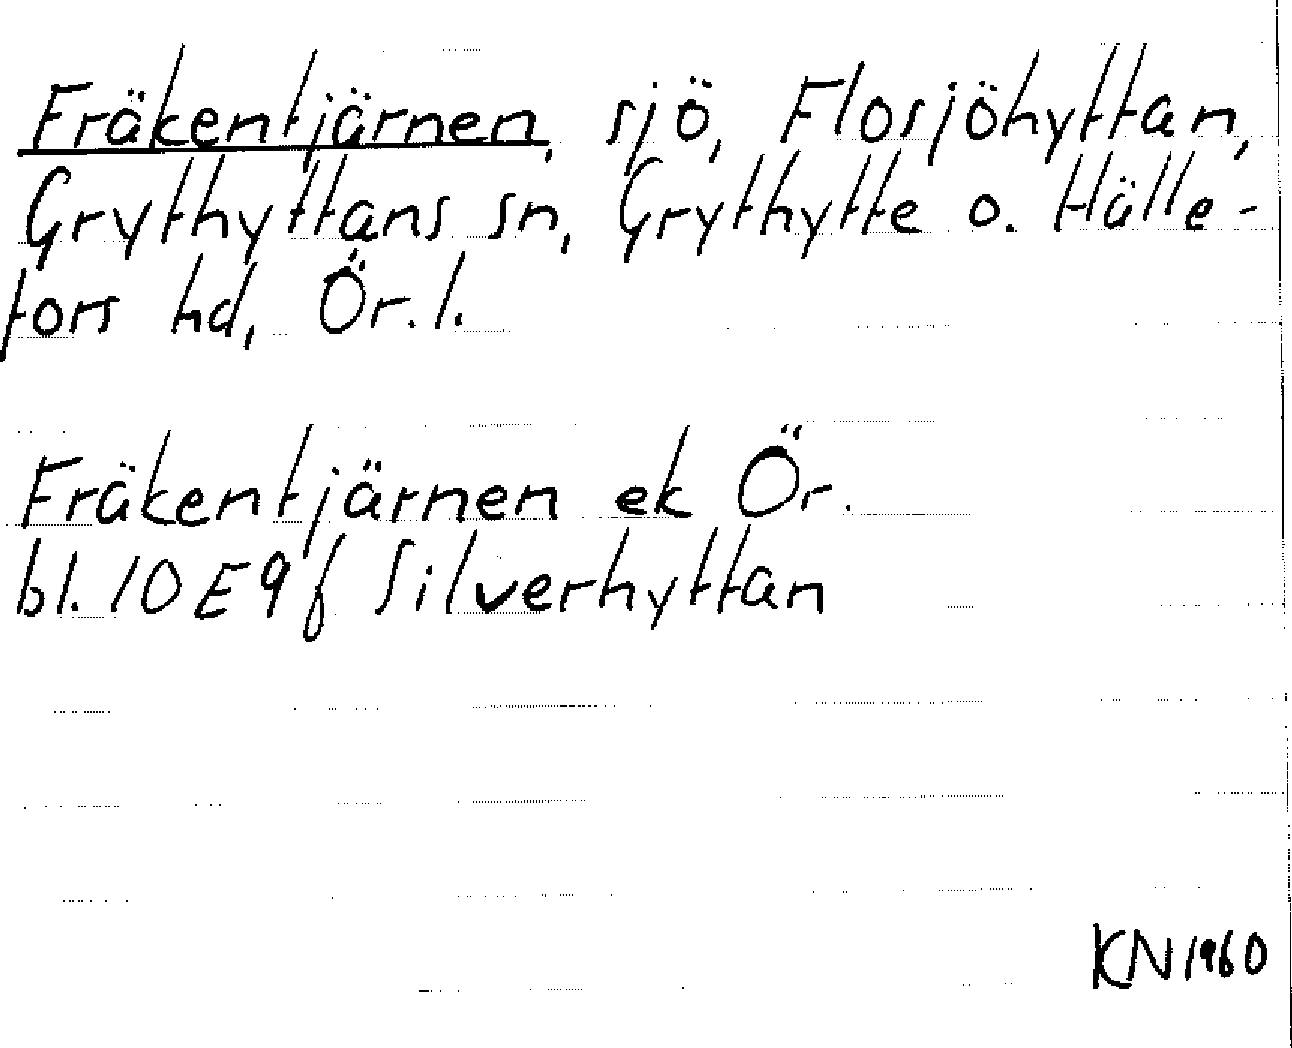 Fräkentjärnen, sjö, Flosjöhyttan,
Grythyttans sn, Grythytte o. Hälle-
fors hd, Ör. l.
Fräkentjärnen ek Ör.
bl. 10 E 9 f Silverhyttan
KN 1960